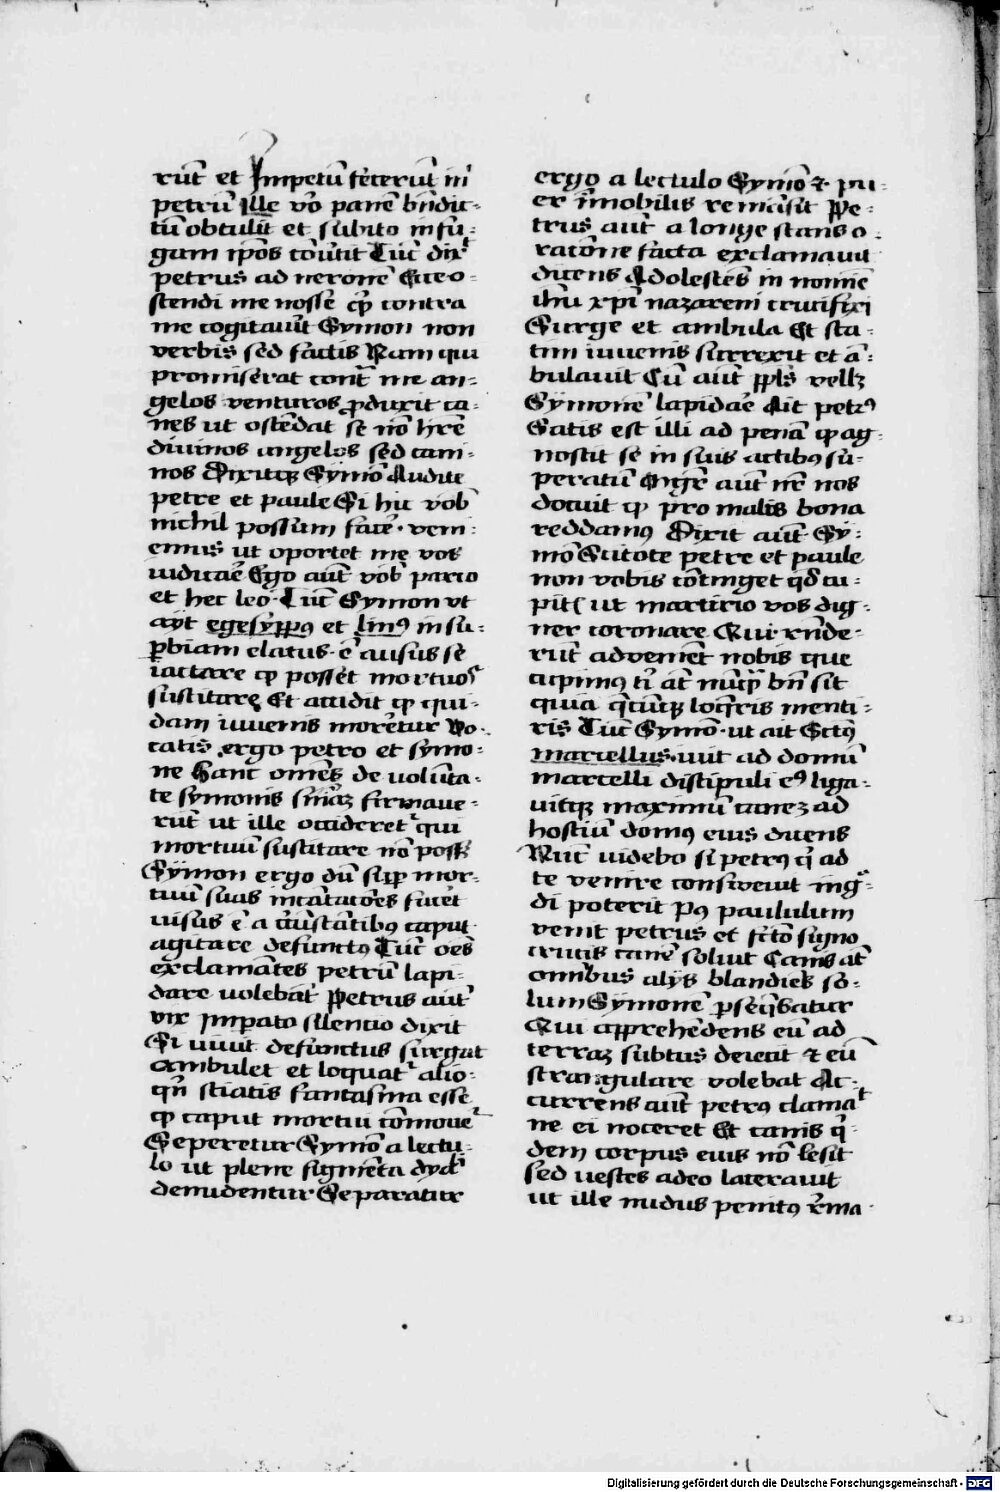 rūt et Impetū fecerūt in
petrū ille v̊o panē bn̄dic-
tū obtulit et subito in fu-
gam ip̄os cōūtit Tūc dix̄
petrus ad neronē Ecce o-
stendi me nosse qp̄ contra
me cogitauit Symon non
verbis sed factis Nam qui
promiserat cont̄ me an-
gelos venturos ꝓduxit ca-
nes ut ostēdat se nō hr̄e
diuinos angelos sed cani-
nos Dixitqꝫ Symō Audite
petre et paule Si hic vob̄
nichil possum fac̄e · veni-
emus ut oportet me vos
iudicar̄e Ego aūt vob̄ parco
et hec leo · Tūc Symon vt
ayt egesipp̄ꝰ et linꝰ in su-
ꝑbiam elatus · ē ausus se
iactare qp̄ posset mortuos
suscitare Et accidit qp̄ qui-
dam iuuenis morētur Vo-
catis ergo petro et symo-
ne hanc om̄es de volūta-
te symonis sn̄iaꝫ firmaue-
rūt ut ille occideret᷑ qui
mortuū suscitare nō poss̄
Symon ergo dū sup̄ mor-
tuū suas incātacōes facēt
uisus ē a circūstātibꝰ caput
agitare defunctꝰ Tūc oēs
exclamātes petrū lapi-
dare volebāt Petrus aūt
vix Impetato silencio dixit
Si uiuit defunctus surgat
ambulet et loquat᷑ alio-
qn̄ sciatis fantasma esse
qp̄ caput mortui cōmoue᷑
Seperetur Symō a lectu-
lo ut plene figmēta dyab̄
denudentur Separatur
ergo a lectulo Symō ⁊ pu-
er Immobilis remāsit Pe-
trus aūt a longe stans o-
racione facta exclamauit
dicens Adolescēs in nomīe
ih̄u xp̄i nazareni crucifixi
Surge et ambula Et sta-
tim iuuenis surrexit et ā-
bulauit Cū aūt ppl̄s vellꝫ
Symonē lapidar̄e Ait petrꝰ
Satis est illi ad penā qp̄ ag-
noscit se in suis artibus su-
peratū Mgr̄ aūt nr̄ nos
docuit qp̄ pro malis bona
reddamꝰ Dixit aūt Sy-
mō Scitote petre et paule
non vobis cōtinget qd̄ cu-
pitꝭ ut martirio vos dig-
ner coronare Qui rn̄de-
rūt adveniēt nobis que
cupimꝰ ti᷑ āt nūqp̄ bn̄ sit
quia q̄cūqꝫ loq̄ris menti-
ris Tūc Symō · ut ait Sctꝰ
marcellus · iuit ad domū
marcelli discipuli eꝰ liga-
uitqꝫ maximū caneꝫ ad
hostiū domꝰ eius dicens
Nūc uidebo si petrꝰ q̇ ad
te venire consweuit ingͣ-
di poterit pꝰ paululum
venit petrus et fc̄to signo
crucis canē soluit Canis āt
omībus alijs blandiēs so-
lum Symonē ꝑseq̄batur
Qui apprehēdens eū ad
terraꝫ subtus deiecit ⁊ eū
strangulare volebat Ac-
currens aūt petrꝰ clamat
ne ei noceret Et canis q̇-
dem corpus eius nō lesit
sed vestes adeo lacerauit
ut ille nudus penitꝰ r̄ma-
Digitalisierung gefördert durch die Deutsche Forschungsgemeinschaft - DFG